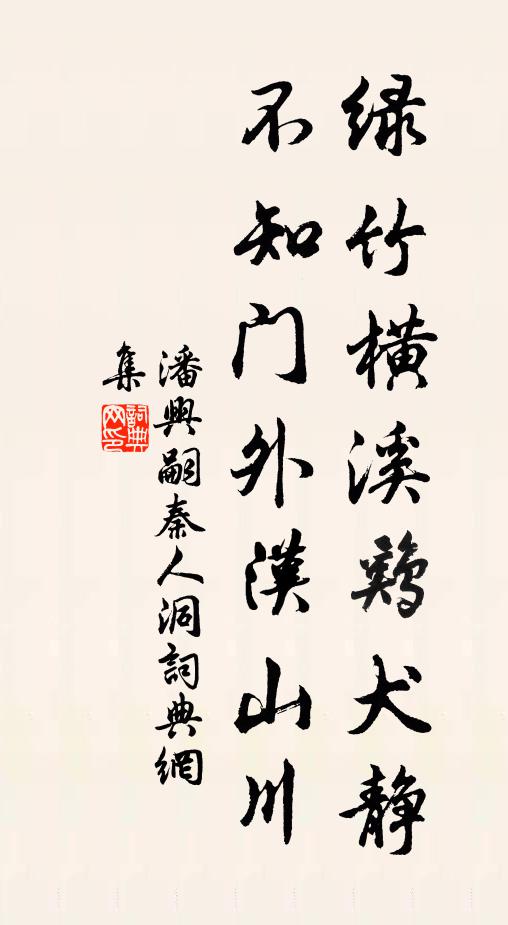 绿竹横溪鸡犬静
不知门外汉山川
潘興嗣秦人洞詞典網
集
詞典网印